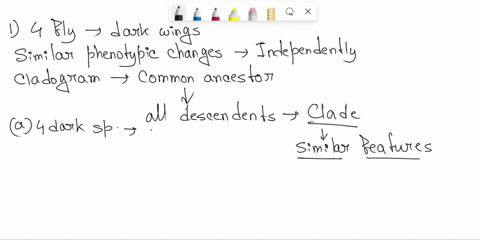 1) 4 fly → dark wings
Similar phenotypic changes → Independently
Cladogram → Common ancestor
↓
all descendents → Clade
(a) 4 dark sp. →
↓
Similar features